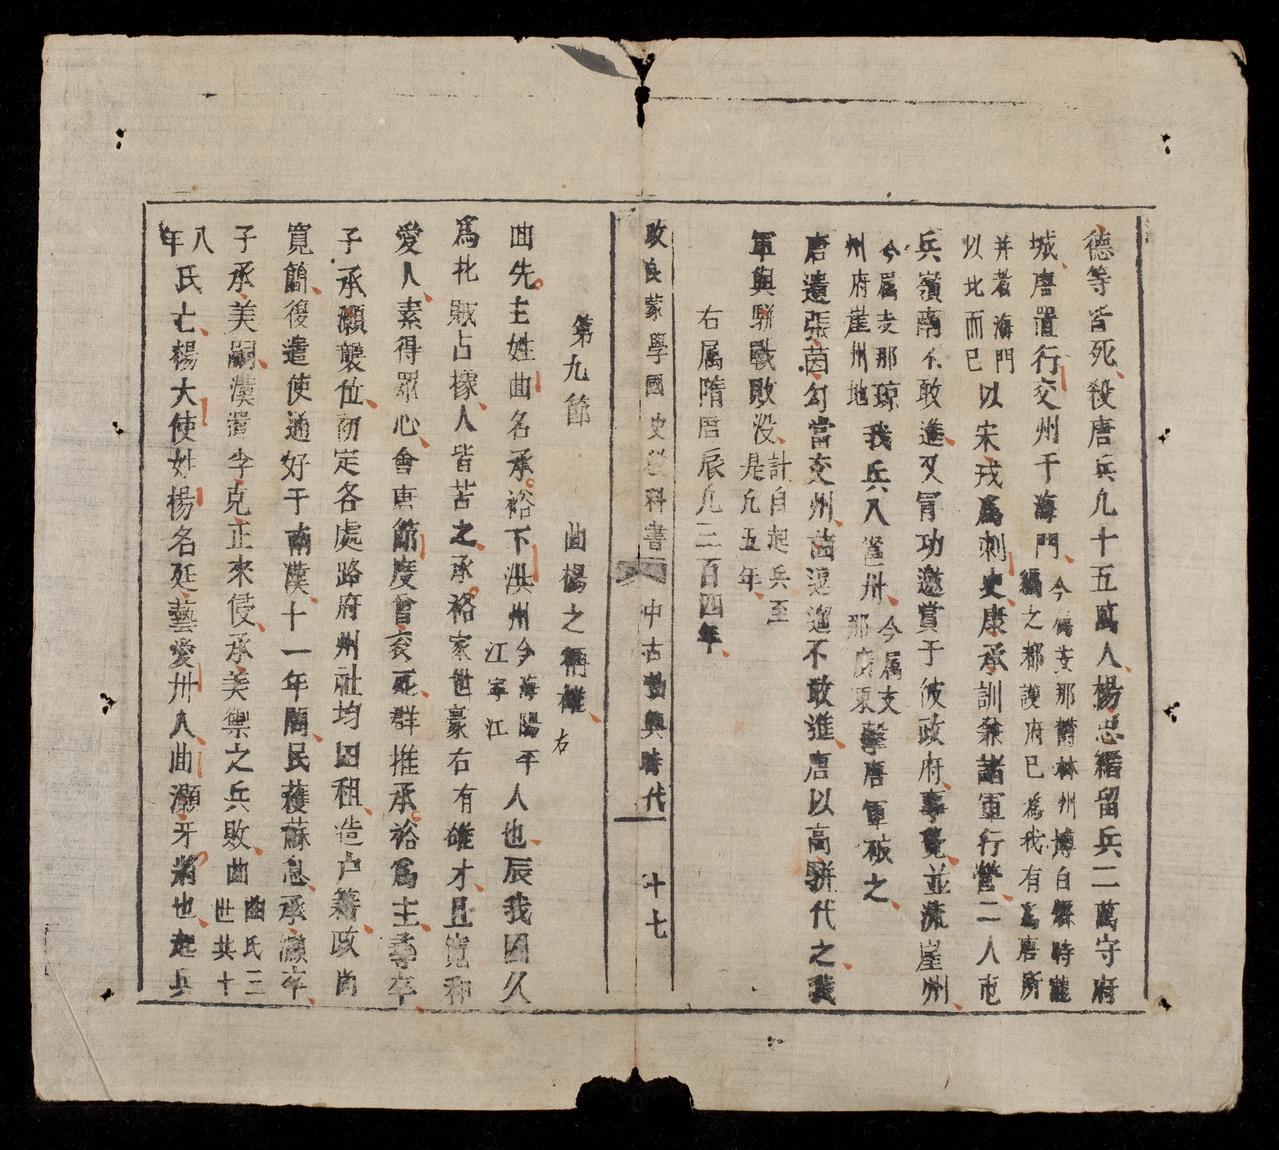 德等皆死殺唐兵九十五萬人楊忠繼留兵二萬守府
城唐置行交州于海門今屬支那欝林州博白縣時龍編之都護府已為我有為唐所
并者海門以此而已以宋戎為刺史康承訓兼諸軍行營二人屯
兵嶺南不敢進又冐功邀賞于彼政府事覺並流崖州
今屬支那瓊州府崖州地我兵入邕州今屬支那廣東擊唐軍破之
唐遣張茵勾當交州茵逗遛不敢進唐以高駢代之我
軍與駢戰敗没計自起兵至是凡五年
右属隋唐辰凡三百四年
改良蒙學國史教科書 中古勃興時代 十七
第九節 曲楊之稱雄右
曲先主姓曲名承裕下洪州今海陽平江寧江人也辰我國久
為北贼占據人皆苦之承裕家世豪右有雄才且寬和
愛人素得眾心會唐節度曾衮死群推承裕為主尋卒
子承灝襲位初定各處路府州社均田租造户籍政尚
寬簡後遣使通好于南漢十一年間民穫蘇息承灝卒
子承美嗣漢遣李克正來侵承美禦之兵敗曲曲氏三世共十
八年氏亡楊大使姓楊名廷藝愛州人曲灝牙將也起兵